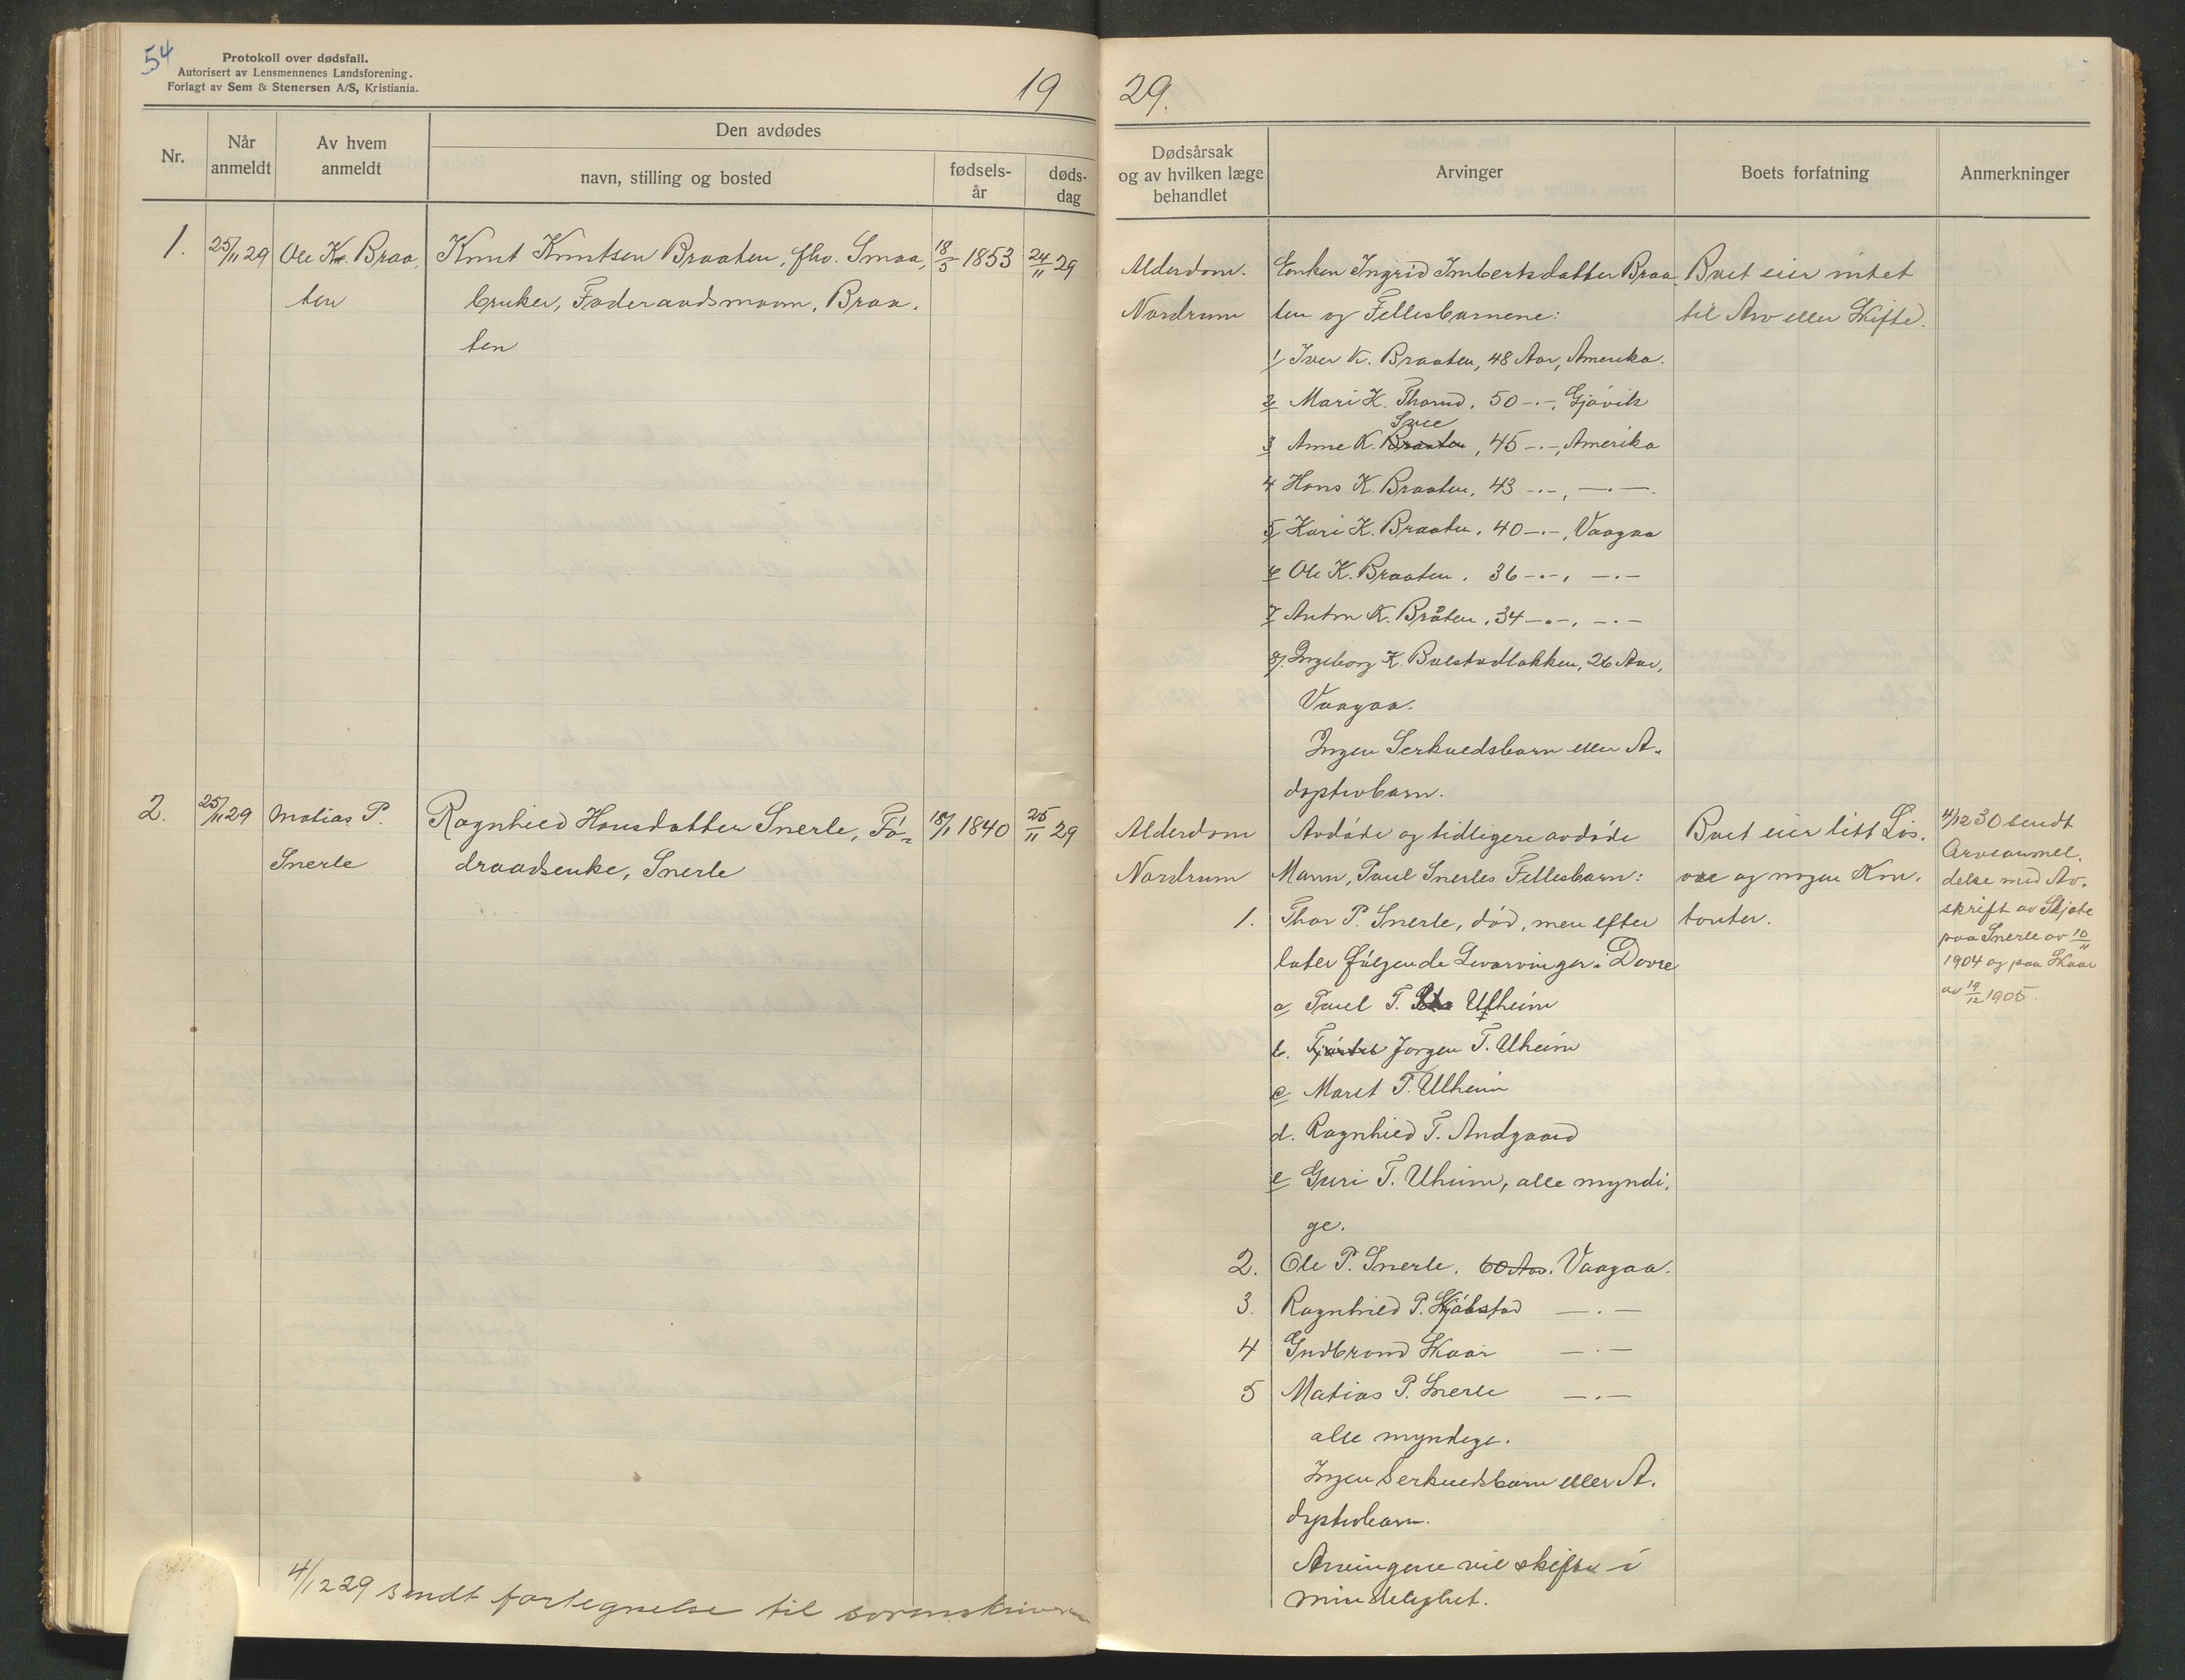 54
Protokoll over dødsfall.
Autorisert av Lensmennenes Landsforening.
Forlagt av Sem & Stenersen A/S, Kristiania.
19
Nr.
Når anmeldt
Av hvem anmeldt
Den avdødes
navn, stilling og bosted
fødsels-
år
døds-
dag
1.
25/11 29
Ole K. Braa
ten
Knut Knutsen Braaten, fhv. Smaa,
bruker, Føderaadsmann, Braa,
ten
18/5 1853
24/11 29
2.
25/11 29
Matias P.
Snerle
Ragnhild Hansdatter Snerle, Fø-
draadsenke, Snerle
18/1 1840
25/11 29
4/12 29 sendt fortegnelse til sorenskriveren
29.
Dødsårsak
og av hvilken læge
behandlet
Arvinger
Boets forfatning
Anmerkninger
Alderdom.
Nordrum
Enken Ingrid Imbertsdatter Braa
ten og Fellesbarnene:
1/ Iver K. Braaten, 48 Aar, Amerika.
2 Mari K. Thorud, 50 -.-, Gjøvik
3 Anne K. Braaten, 45 -.-, Amerika
4 Hans K. Braaten, 43 -.-, -.-.
5 Kari K. Braaten, 40 -.-, Vaagaa
6 Ole K. Braaten, 36 -.-, -.-
7 Anton K. Bråten, 34 -.-, -.-
8/. Ingeborg K. Bolstadløkken, 26 Aar,
Vaagaa.
Ingen Serkuldsbarn eller A-
doptivbarn.
Boet eier intet
til Arv eller Skifte.
Alderdom
Nordrum
Avdøde og tidligere avdøde
Mann, Paul Snerles Fellesbarn:
1. Thor P. Snerle, død, men efter
later følgende Livarvinger i Dovre
a Paul T. Ulheim
b. Jørgen T. Ulheim
c Marit T. Ulheim
d. Ragnhild T. Andgaard
e Guri T. Ulheim, alle myndi,
ge.
2. Ole P. Snerle, 60 Aar. Vaagaa.
3. Ragnhild P. Skjølstad -.-
4 Gudbrand Skaar -.-
5 Matias P. Snerle -.-
alle myndige.
Ingen Serkuldsbarn eller A.
doptivbarn.
Arvingene vil skifte i
mindelighet.
Boet eier litt Løs.
øre og nogen Kon.
tanter.
4/12 30 sendt
Arveanmel.
delse med Av.
skrift av Skjøte
paa Snerle av 10/11
1904 og paa Skaar
av 19/12 1905.